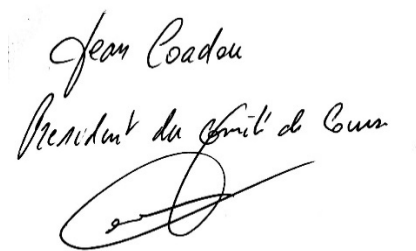 Jean Coadou
President du Comité de Course